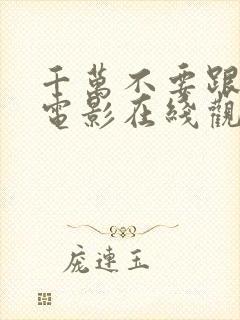 千萬不要跟
電影在綫觀
庞連玉